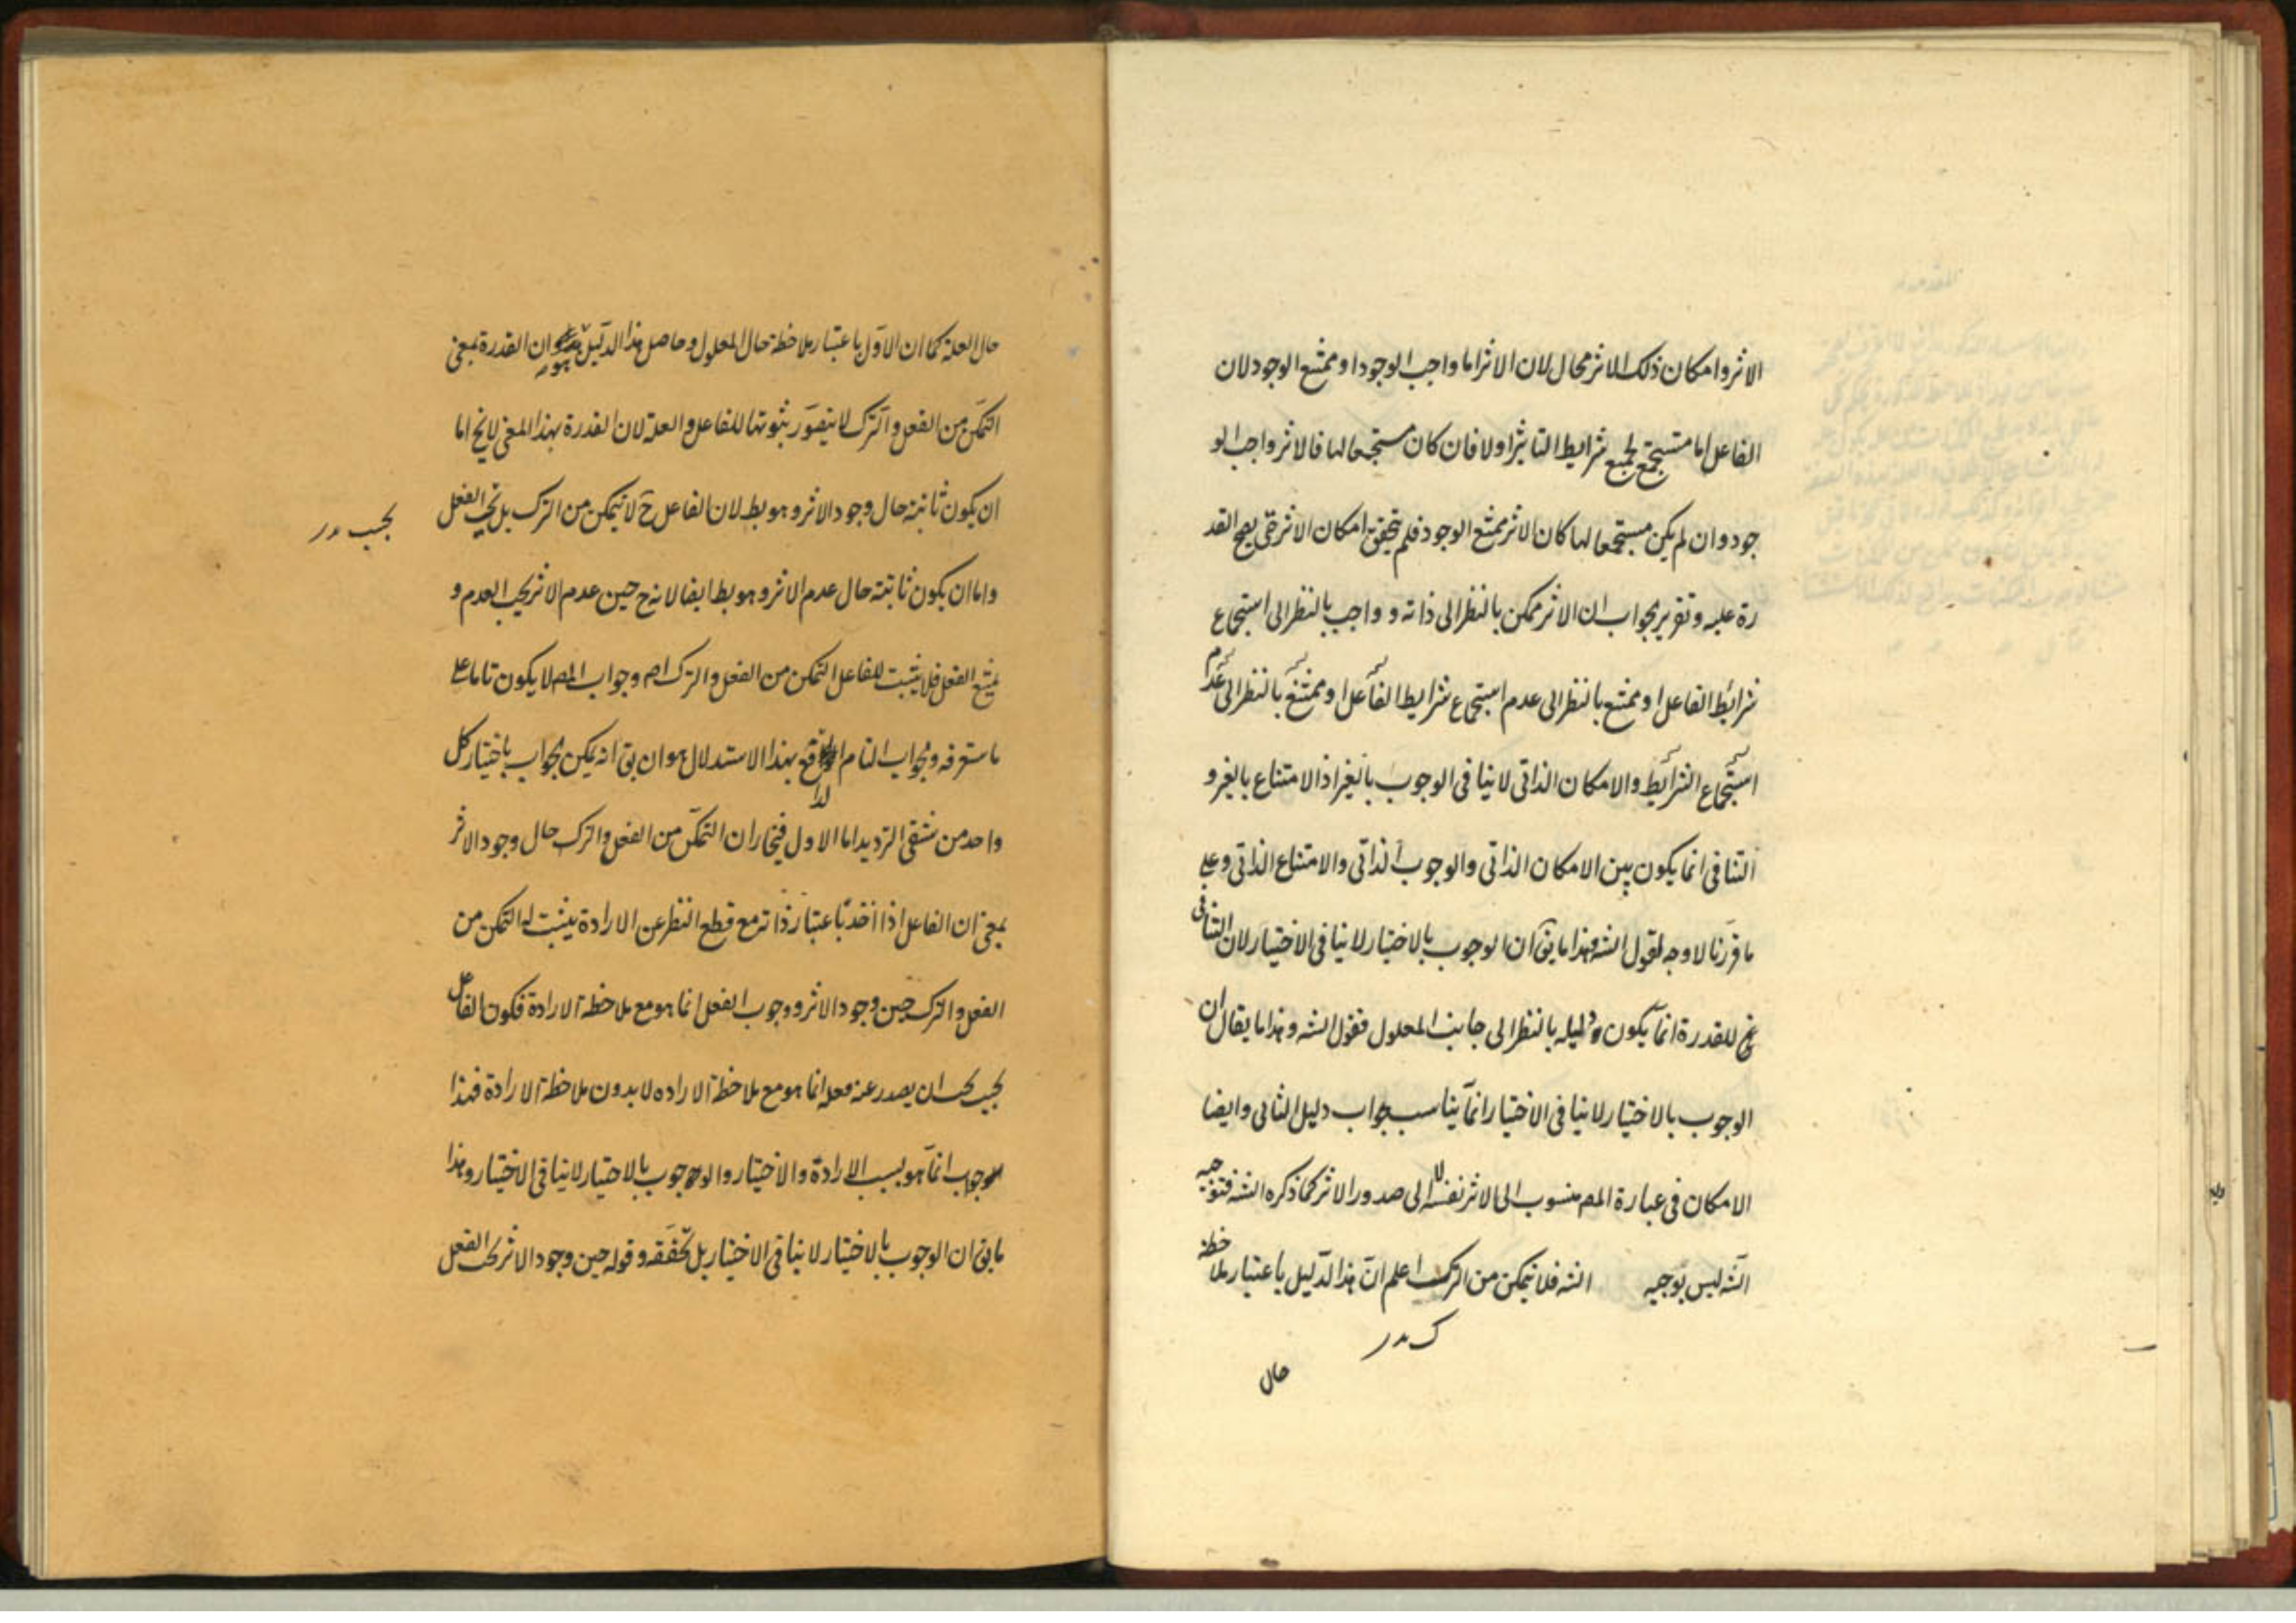 الاثر وامكان ذلك الاثر محال لان الاثر اما واجب الوجود او ممتنع الوجود لان
الفاعل اما مستجمع لجميع شرايط التاثير اولا فان كان مستجمعا لها فالاثر واجب الو
جود وان لم يكن مستجمعا لها كان الاثر ممتنع الوجود فلم يتحقق امكان الاثر حتى يصح القد
رة عليه وتقرير الجواب ان الاثر ممكن بالنظر الى ذاته و واجب بالنظر الى استجماع
شرائط الفاعل او ممتنع بالنظر الى عدم استجماع شرايط الفاعل او ممتنع بالنظر الى عدم
استجماع الشرائط والامكان الذاتى لا ينافى الوجوب بالغير اذ الامتناع بالغير و
التنافى انما يكون بين الامكان الذاتى والوجوب الذاتى والامتناع الذاتى وعلى
ما قررنا لا وجه لقول الشه وهذا ما يق ان الوجوب بالاختيار لا ينافى الاختيار لان التنافى
للقدرة انما يكون دليله بالنظر الى جانب المعلول فقول الشه وهذا ما يقال ان
الوجوب بالاختيار لا ينافى الاختيار انما يناسب جواب دليل الثانى وايضا
الامكان فى عبارة المص منسوب الى الاثر نفسه لا الى صدور الاثر كما ذكره الشه فتوجيه
الشه ليس بوجيه الشه فلا يتمكن من الترك اعلم ان هذا الدليل باعتبار ملاحظة
ك مدر
حال
حال العلة كما ان الاول باعتبار ملاحظة حال المعلول وحاصل هذا الدليل هو ان القدرة بمعنى
التمكن من الفعل والترك لا يتصور ثبوتها للفاعل والعلة لان القدرة بهذا المعنى لا يخ اما
ان يكون ثابتة حال وجود الاثر وهو بط لان الفاعل ح لا يتمكن من الترك بل يجب الفعل
يجب مدر
واما ان يكون ثابتة حال عدم الاثر وهو بط ايضا لانه ح حين عدم الاثر يجب العدم و
يمتنع الفعل فلا يثبت للفاعل التمكن من الفعل والترك اه وجواب المص لا يكون تاما على
ما ستعرفه والجواب التام الواقع بهذا الاستدلال هو ان يق انه يمكن الجواب باختيار كل
واحد من شقى الترديد اما الاول فيختار ان التمكن من الفعل والترك حال وجود الاثر
بمعنى ان الفاعل اذا اخذ باعتبار ذاته مع قطع النظر عن الارادة يثبت له التمكن من
الفعل والترك حين وجود الاثر ووجوب الفعل انما هو مع ملاحظة الارادة فكون الفاعل
يجب ان يصدر عنه فعله انما هو مع ملاحظة الاراده لا بدون ملاحظة الارادة فهذا
الوجوب انما هو بسبب الارادة والاختيار والوجوب بالاختيار لا ينافى الاختيار وهذا
ما يق ان الوجوب بالاختيار لا ينافى الاختيار بل تحققه وقوله حين وجود الاثر يجب الفعل